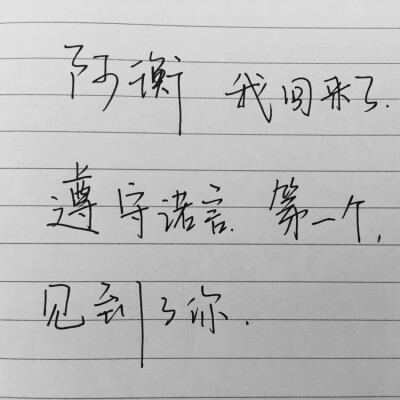 阿衡 我回来了.
遵守诺言.第一个,
见到了你.